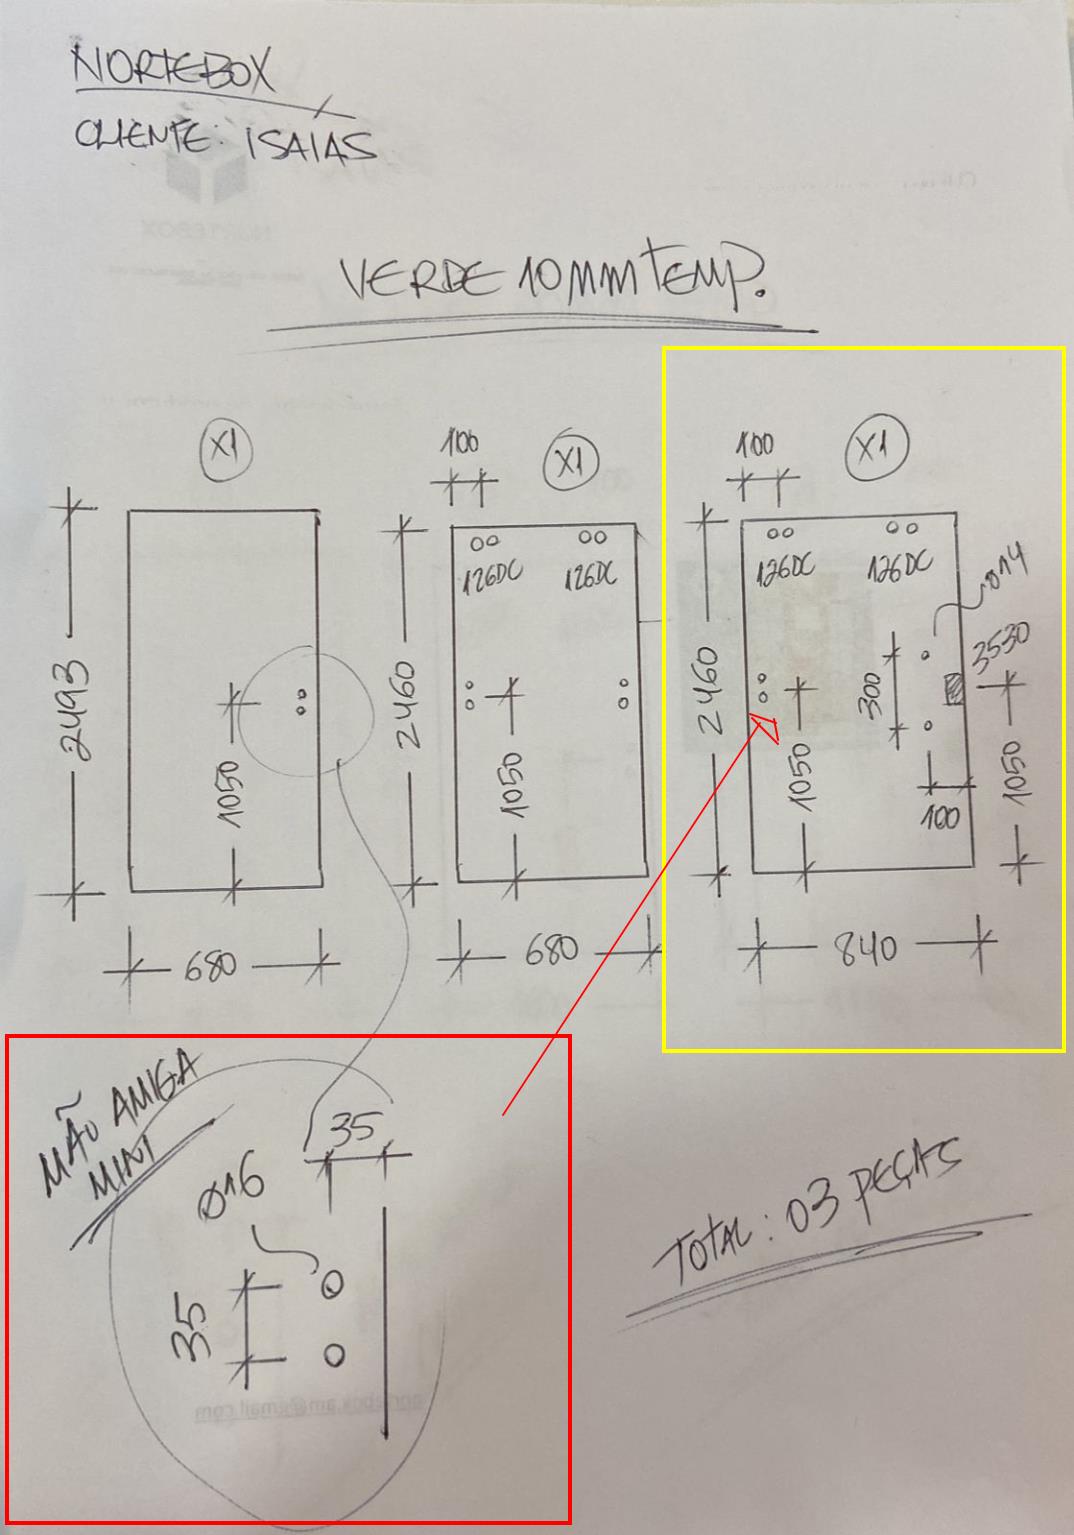 NORTEBOX
CLIENTE: ISAÍAS
VERDE 10MM TEMP.
X1
2493
1050
680
100
X1
126DC 126DC
2460
1050
680
100
X1
126DC 126DC
Ø14
3530
2460
300
1050
100
1050
840
MÃO AMIGA
MINI
35
Ø16
35
TOTAL: 03 PEÇAS